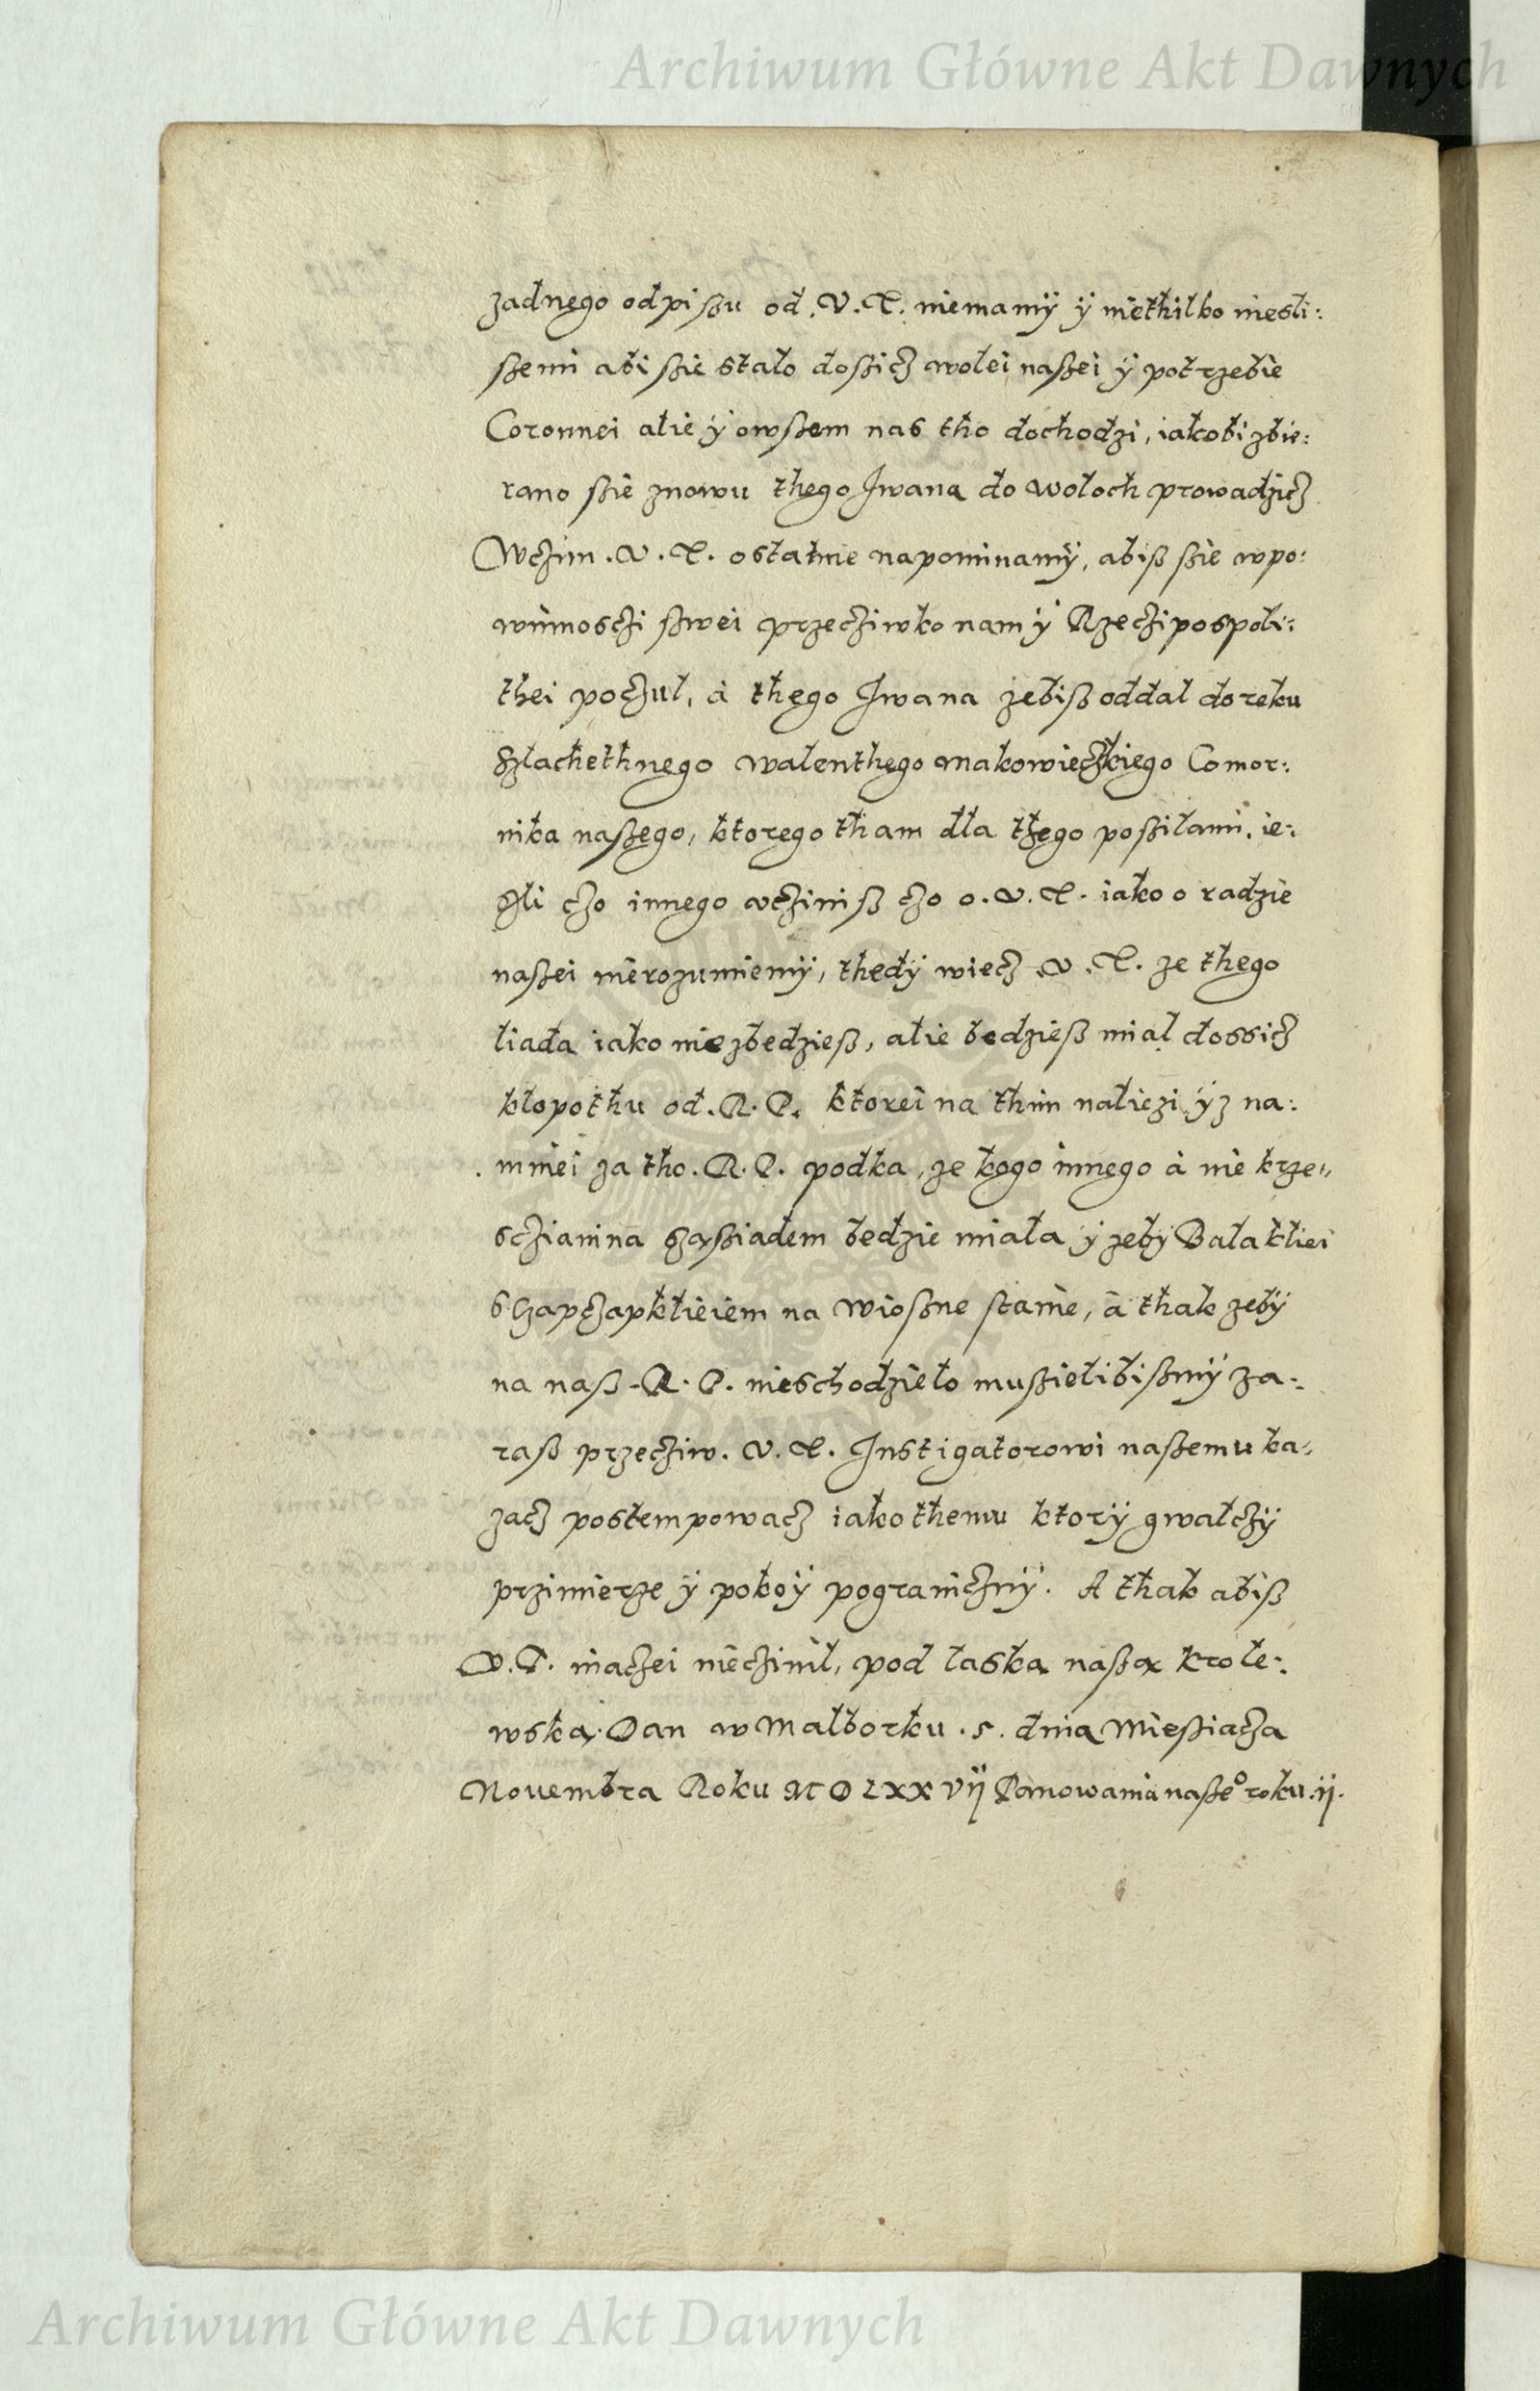 Archiwum Główne Akt Dawnych
zadnego odpißu od .V.T. niemamÿ ÿ niethilko niesli:
ßemi abi ßie stalo doßicz wolei naßei ÿ potrzebie
Coronnei alie ÿ owßem nas tho dochodzi, iakobi zbie:
rano ßie znowu thego Jwana do woloch prowadzicz
Wczim .V.T. ostatnie napominamÿ, abiß ßie wpo:
winnosczi ßwei przecziwko nam ÿ Rzeczipospoli:
thei poczul, à thego Jwana zebiß oddal do reku
Szlachethnego walenthego makowieczkiego Comor:
nika naßego, ktorego tham dla thego poßilami. ie:
sli czo innego vcziniß czo o .V.T. iako o radzie
naßei nierozumiemÿ, thedÿ wiecz .V.T. ze thego
liada iako niezbedzieß, alie bedzieß mial dossicz
klopothu od .R.P. ktorei na thim naliezi ÿz na:
mniei za tho .R.P. podka, ze kogo innego à nie krze„
sczianina sząßiadem bedzie miala ÿ zebÿ Balaklei
s Czapczakliеiem na wioßne stanie, à thak zebÿ
na naß .R.P. nieschodzielo mußielibißmÿ za:
raß przecziw .V.T. Instigatorowi naßemu ka:
zacz postempowacz iako themu ktorÿ gwalczÿ
przimierze ÿ pokoÿ pograniczny. A thak abiß
V.T. inaczei nieczinil, pod laska naßą krole:
wską. Dan w Malborku .5. dnia Mießiącza
Nouembra Roku MDLXXVIJ Panowania naße° roku .ij.
Archiwum Główne Akt Dawnych